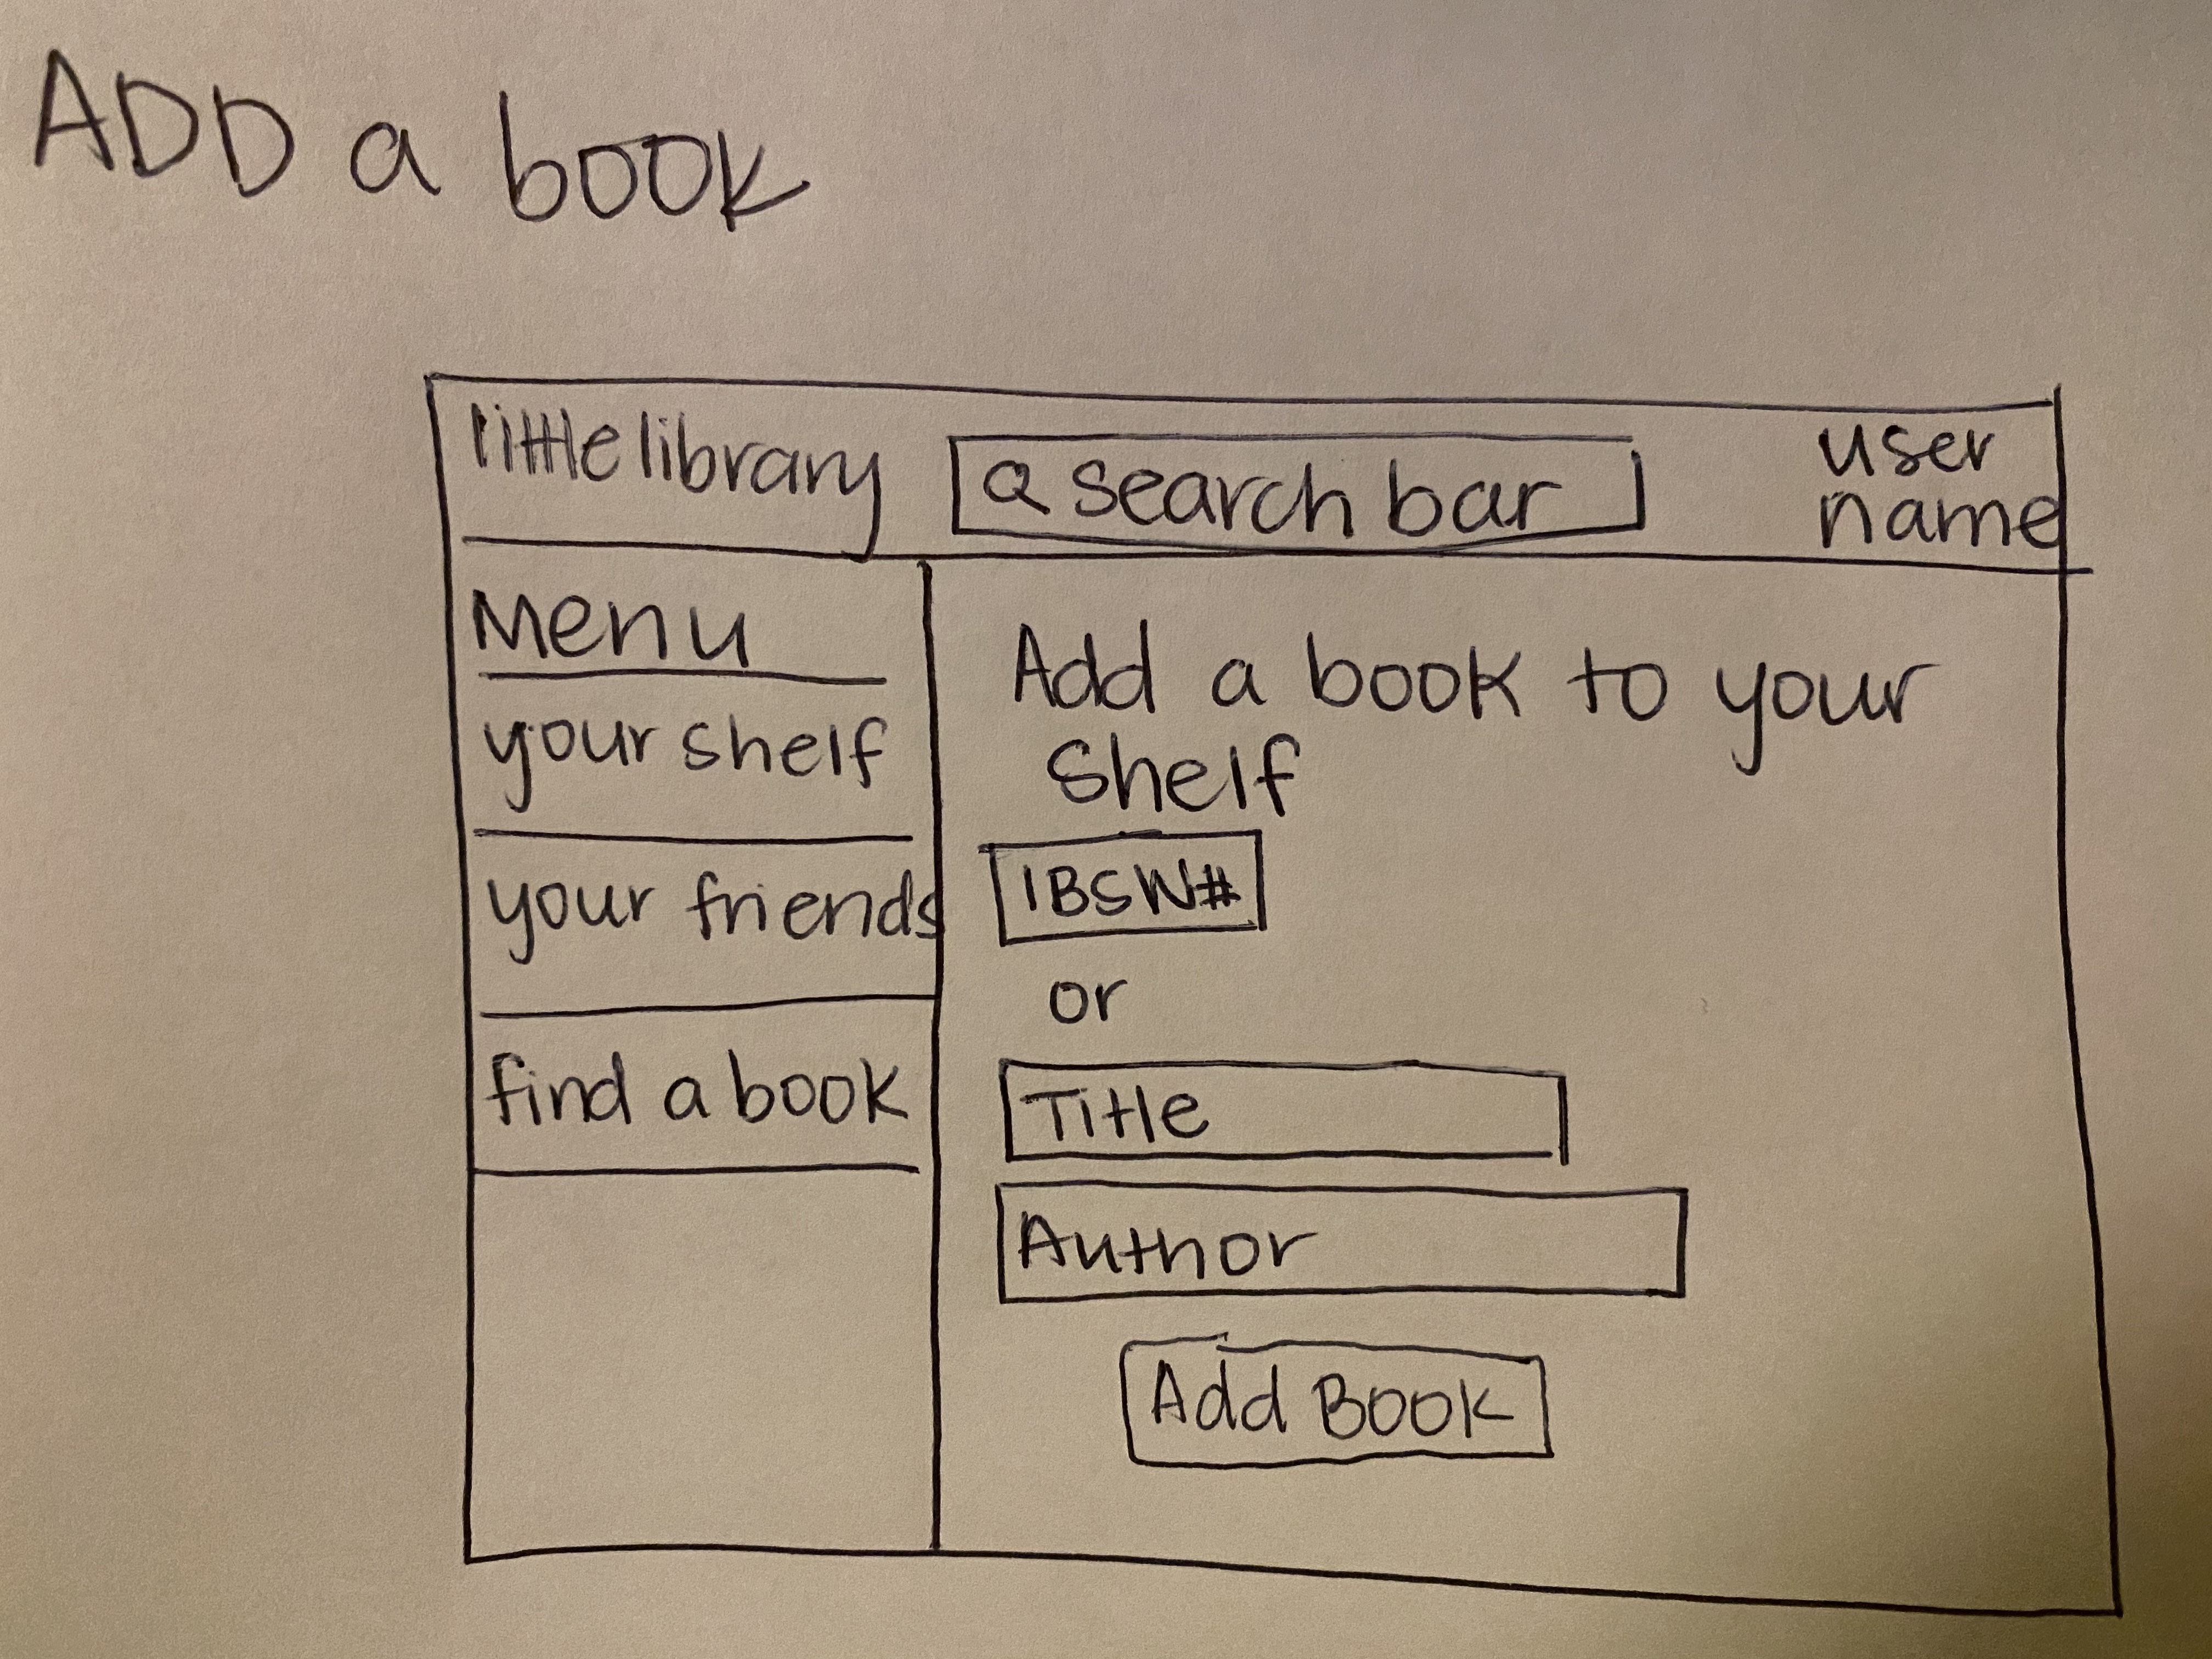 ADD a book
little library
Q search bar
user
name
Menu
your shelf
your friends
find a book
Add a book to your
Shelf
IBSN#
or
Title
Author
Add Book